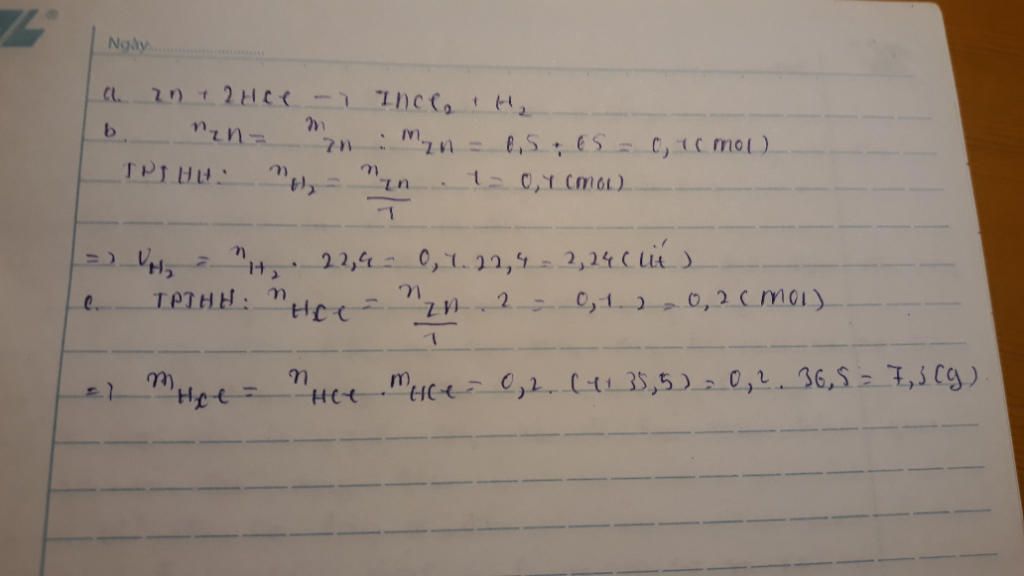 Ngày:
a. Zn + 2HCl → ZnCl₂ + H₂
b. nZn = mZn : MZn = 6,5 : 65 = 0,1 (mol)
TPTHH: nH₂ = nZn/1 . 1 = 0,1 (mol)
=> VH₂ = nH₂ . 22,4 = 0,1 . 22,4 = 2,24 (lít)
c. TPTHH: nHCl = nZn/1 . 2 = 0,1 . 2 = 0,2 (mol)
=> mHCl = nHCl . mHCl = 0,2 . (1+35,5) = 0,2 . 36,5 = 7,3 (g)